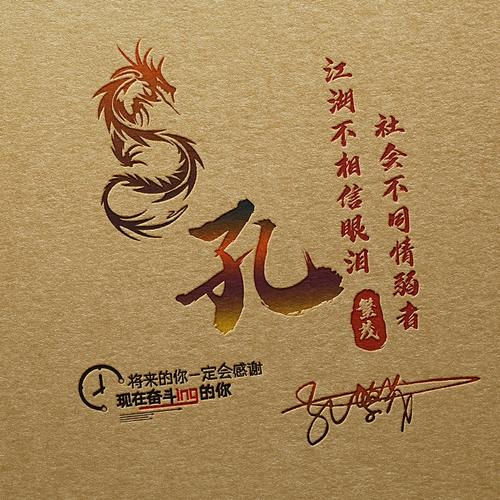 社会不同情弱者
江湖不相信眼泪
孔
繁茂
将来的你一定会感谢
现在奋斗ing的你